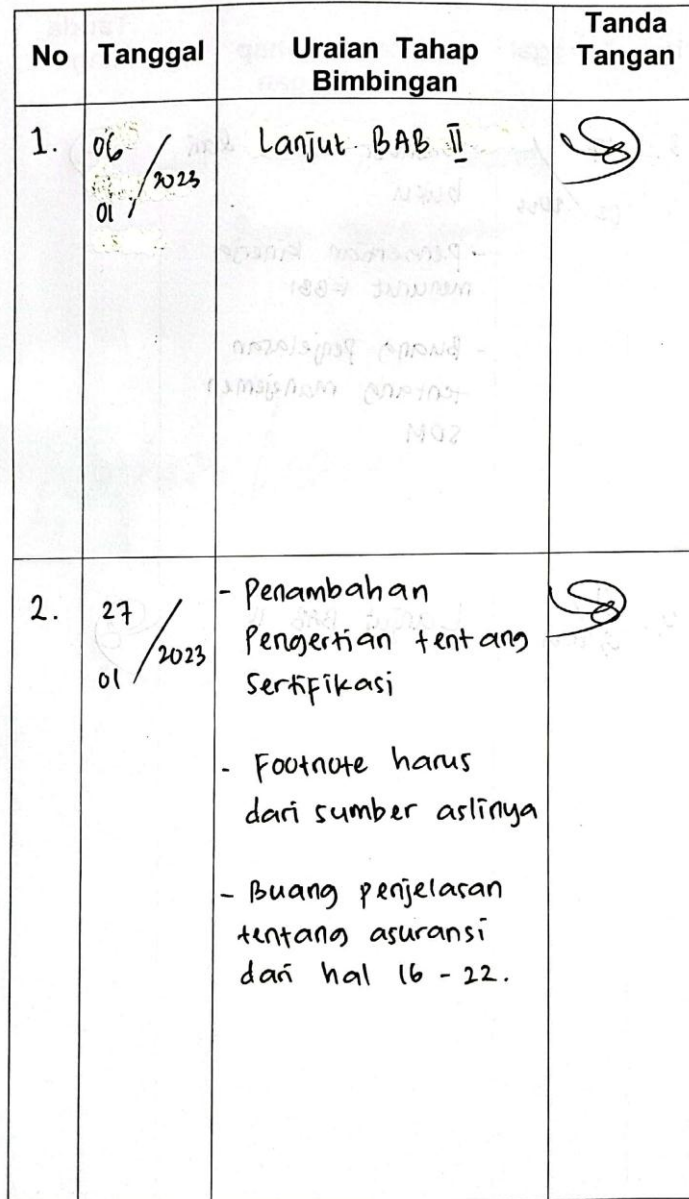 No Tanggal Uraian Tahap Bimbingan Tanda Tangan
1. 06/01/2023 Lanjut BAB II
2. 27/01/2023 - Penambahan
Pengertian tentang
Sertifikasi
- Footnote harus
dari sumber aslinya
- Buang penjelasan
tentang asuransi
dari hal 16 - 22.